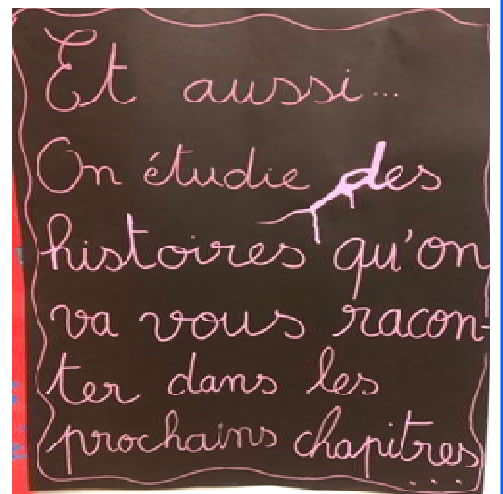 Et aussi...
On étudie des
histoires qu'on
va vous racon-
ter dans les
prochains chapitres
...